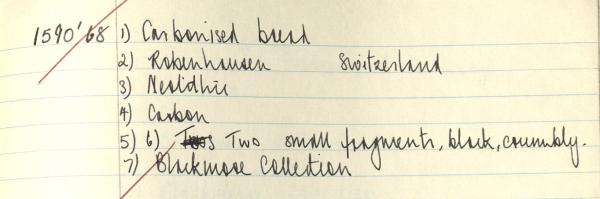 1590'68 1) Carbonised bread
2) Robenhausen Switzerland
3) Neolithic
4) Carbon
5) 6) Two small fragments, black, crumbly.
7) Blackmore Collection